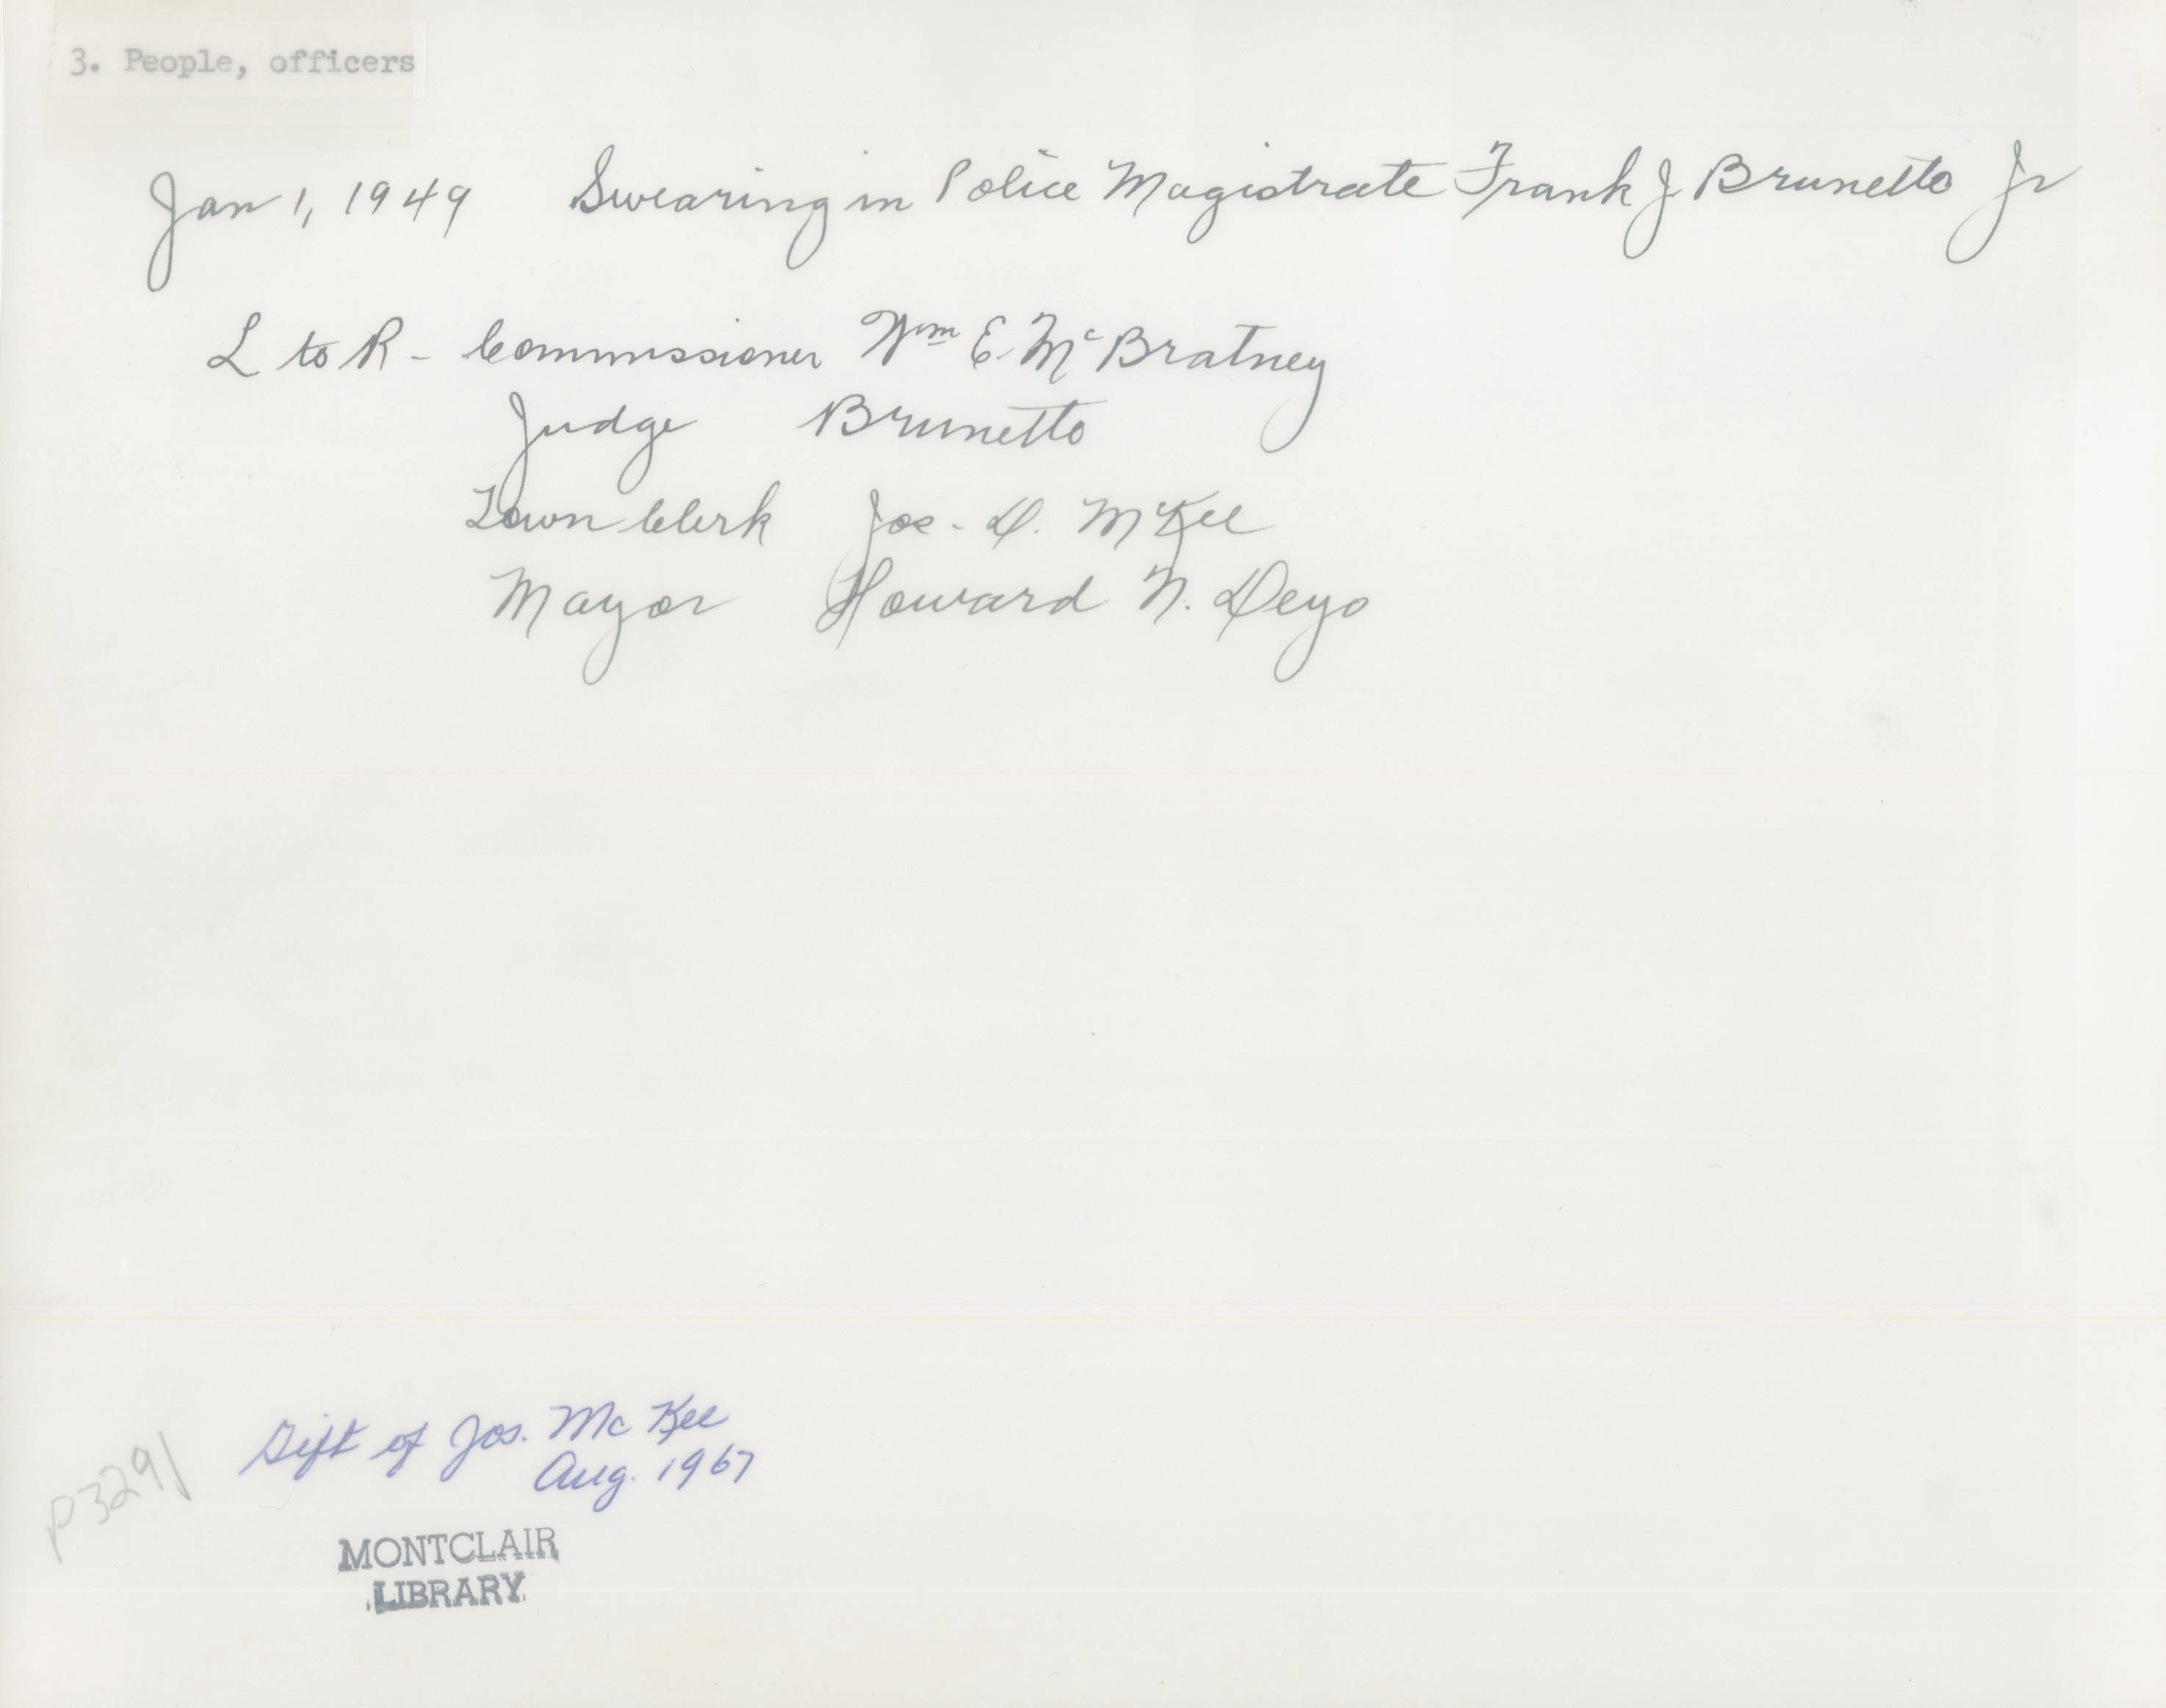 3. People, officers
Jan 1, 1949 Swearing in Police Magistrate Frank J Brunetto Jr
L to R - Commissioner Wm E. McBratney
Judge Brunetto
Town Clerk Jos. D. McKee
Mayor Howard N. Deyo
Gift of Jos. McKee
Aug. 1967
p3291
MONTCLAIR
LIBRARY